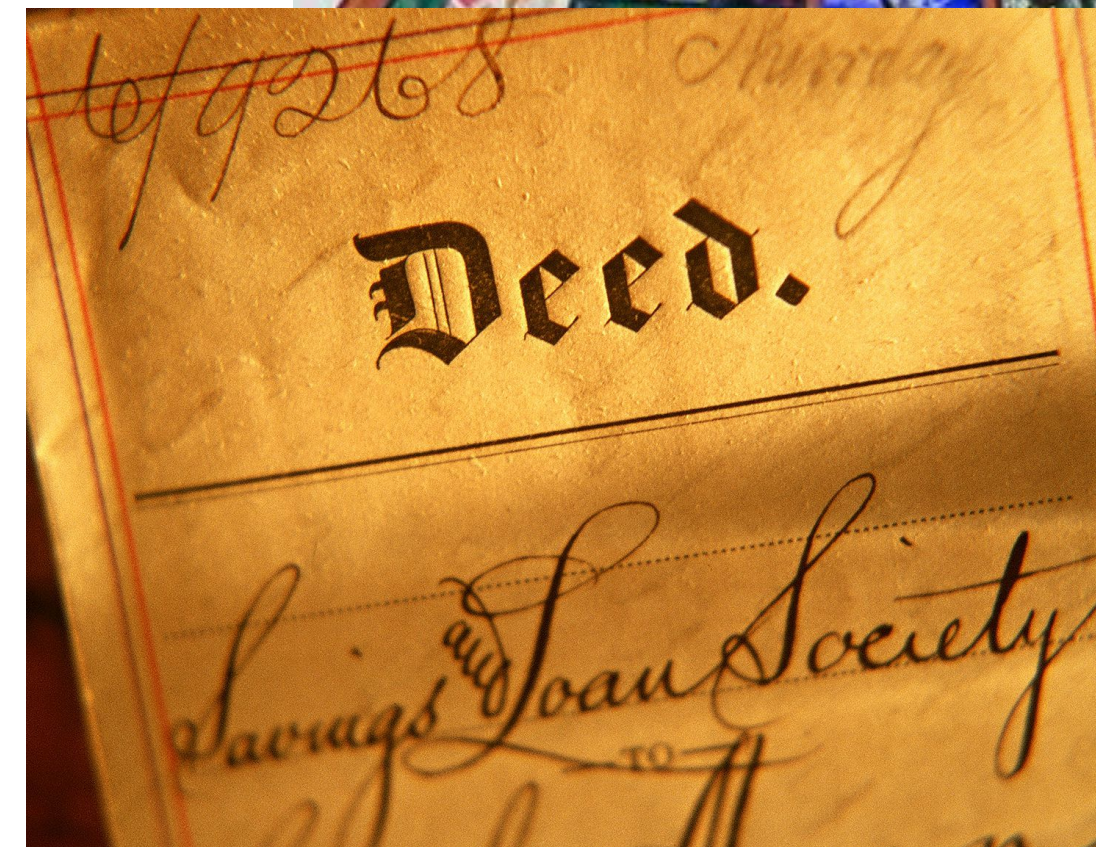 69268 Murray
Deed.
Savings and Loan Society
TO